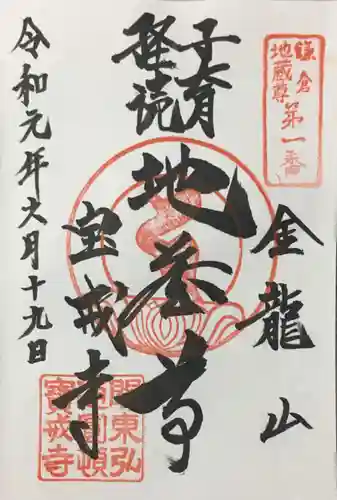 鎌倉
地蔵尊
第一番
金龍山
子育
経読
地蔵尊
宝戒寺
令和元年六月十九日
関東弘
寶戒寺